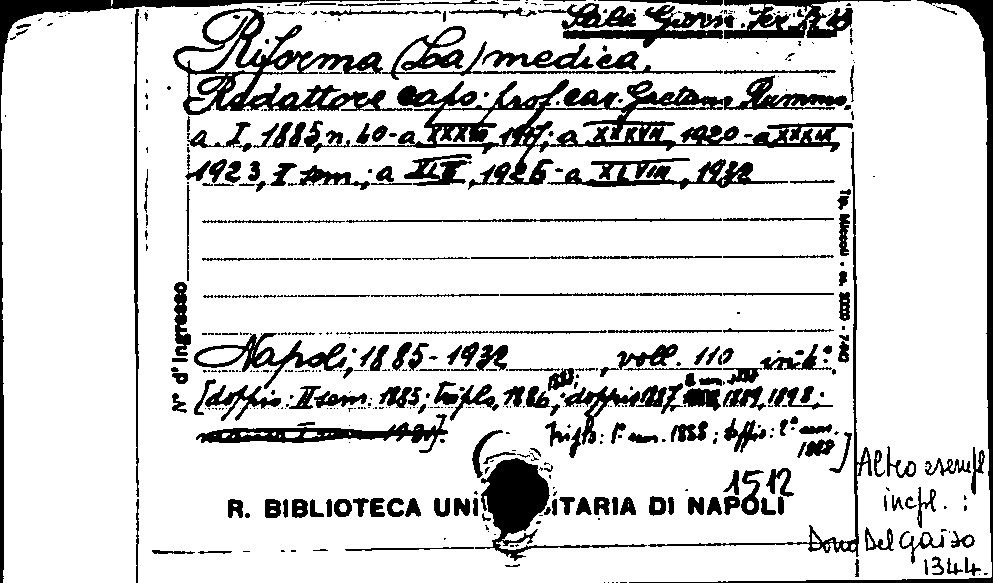 Sala Giorn. Ser. B 49
Riforma (La) medica.
Redattore capo: prof. cav. Gaetano Rummo.
a. I, 1885, n. 60 - a XXXIII, 1917; a XXXVII, 1920 - a XXXIX,
1923, I sem.; a XLII, 1926 - a XLVIII, 1932
N° d'Ingresso
Napoli, 1885-1932, voll. 110 in-4°.
[doppio: II sem. 1885; triplo, 1886, doppio 1887, 1889, 1898;
triplo: 1° sem. 1888; doppio: 2° sem. 1888]
1512
R. BIBLIOTECA UNI SITARIA DI NAPOLI
Altro esempl.
incpl. :
Dono Del Gaiso
1344.